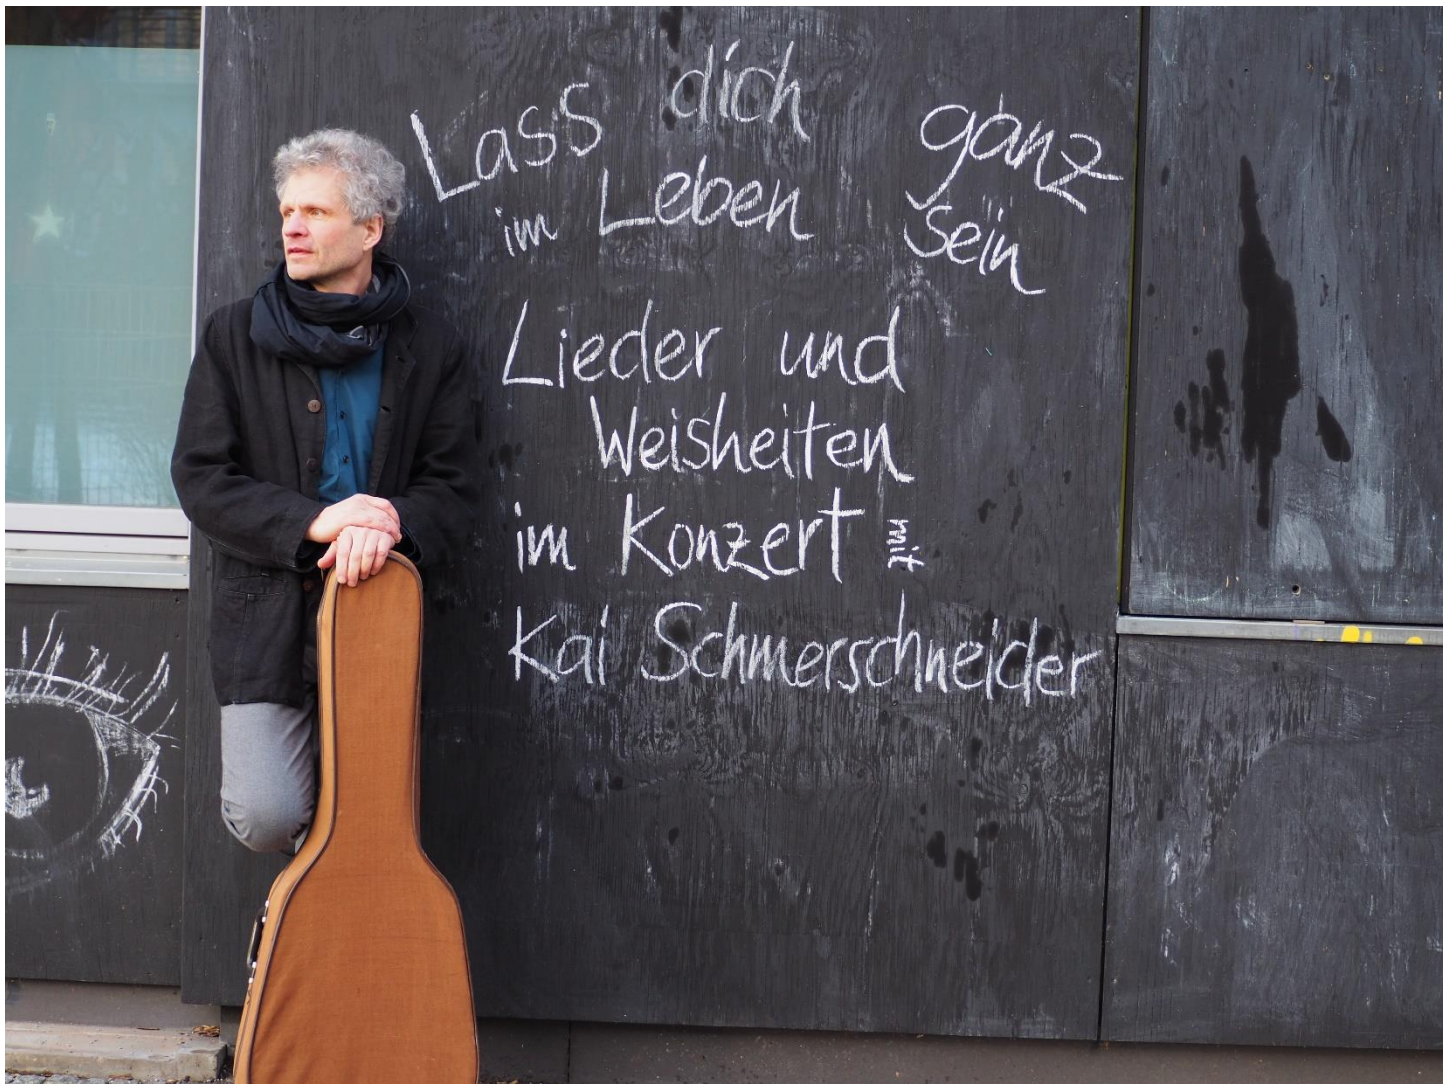 Lass dich ganz
im Leben sein
Lieder und
Weisheiten
im Konzert mit
Kai Schmerschneider